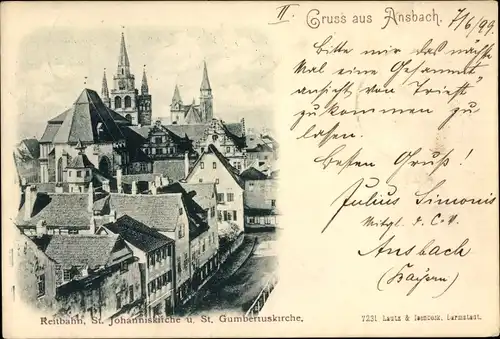 II
Gruss aus Ansbach. 7/6/99.
Bitte mir das nächste
Mal eine Gesammt
ansicht von Triest
zu kommen zu
lassen.
Besten Gruß!
Julius Simonis
Mitgl. d. C. V.
Ansbach
(Bayern)
Reitbahn, St. Johanniskirche u. St. Gumbertuskirche.
7231 Lautz & Isenbeck, Darmstadt.